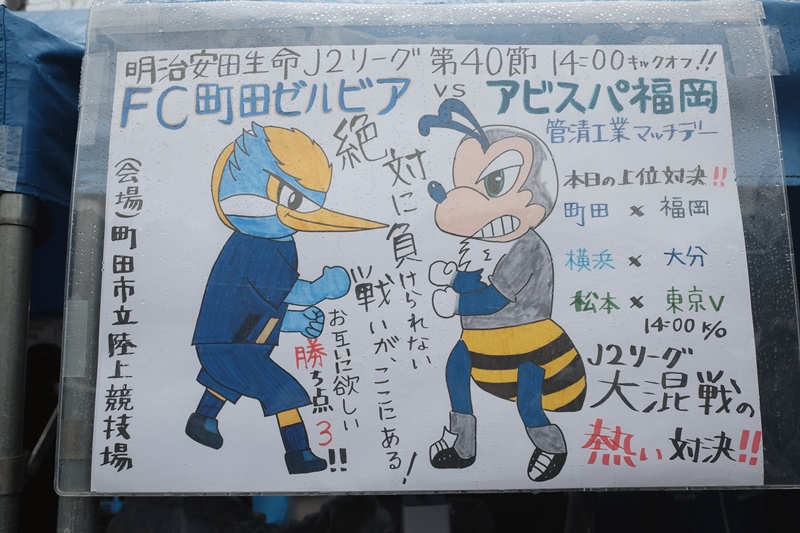 明治安田生命J2リーグ 第40節 14:00キックオフ!!
FC町田ゼルビア VS アビスパ福岡
管清工業マッチデー
(会場)町田市立陸上競技場
絶対に負けられない
戦いが、ここにある!
お互いに欲しい
勝ち点3!!
本日の上位対決!!
町田 × 福岡
横浜 × 大分
松本 × 東京V
14:00 K/O
J2リーグ
大混戦の
熱い対決!!